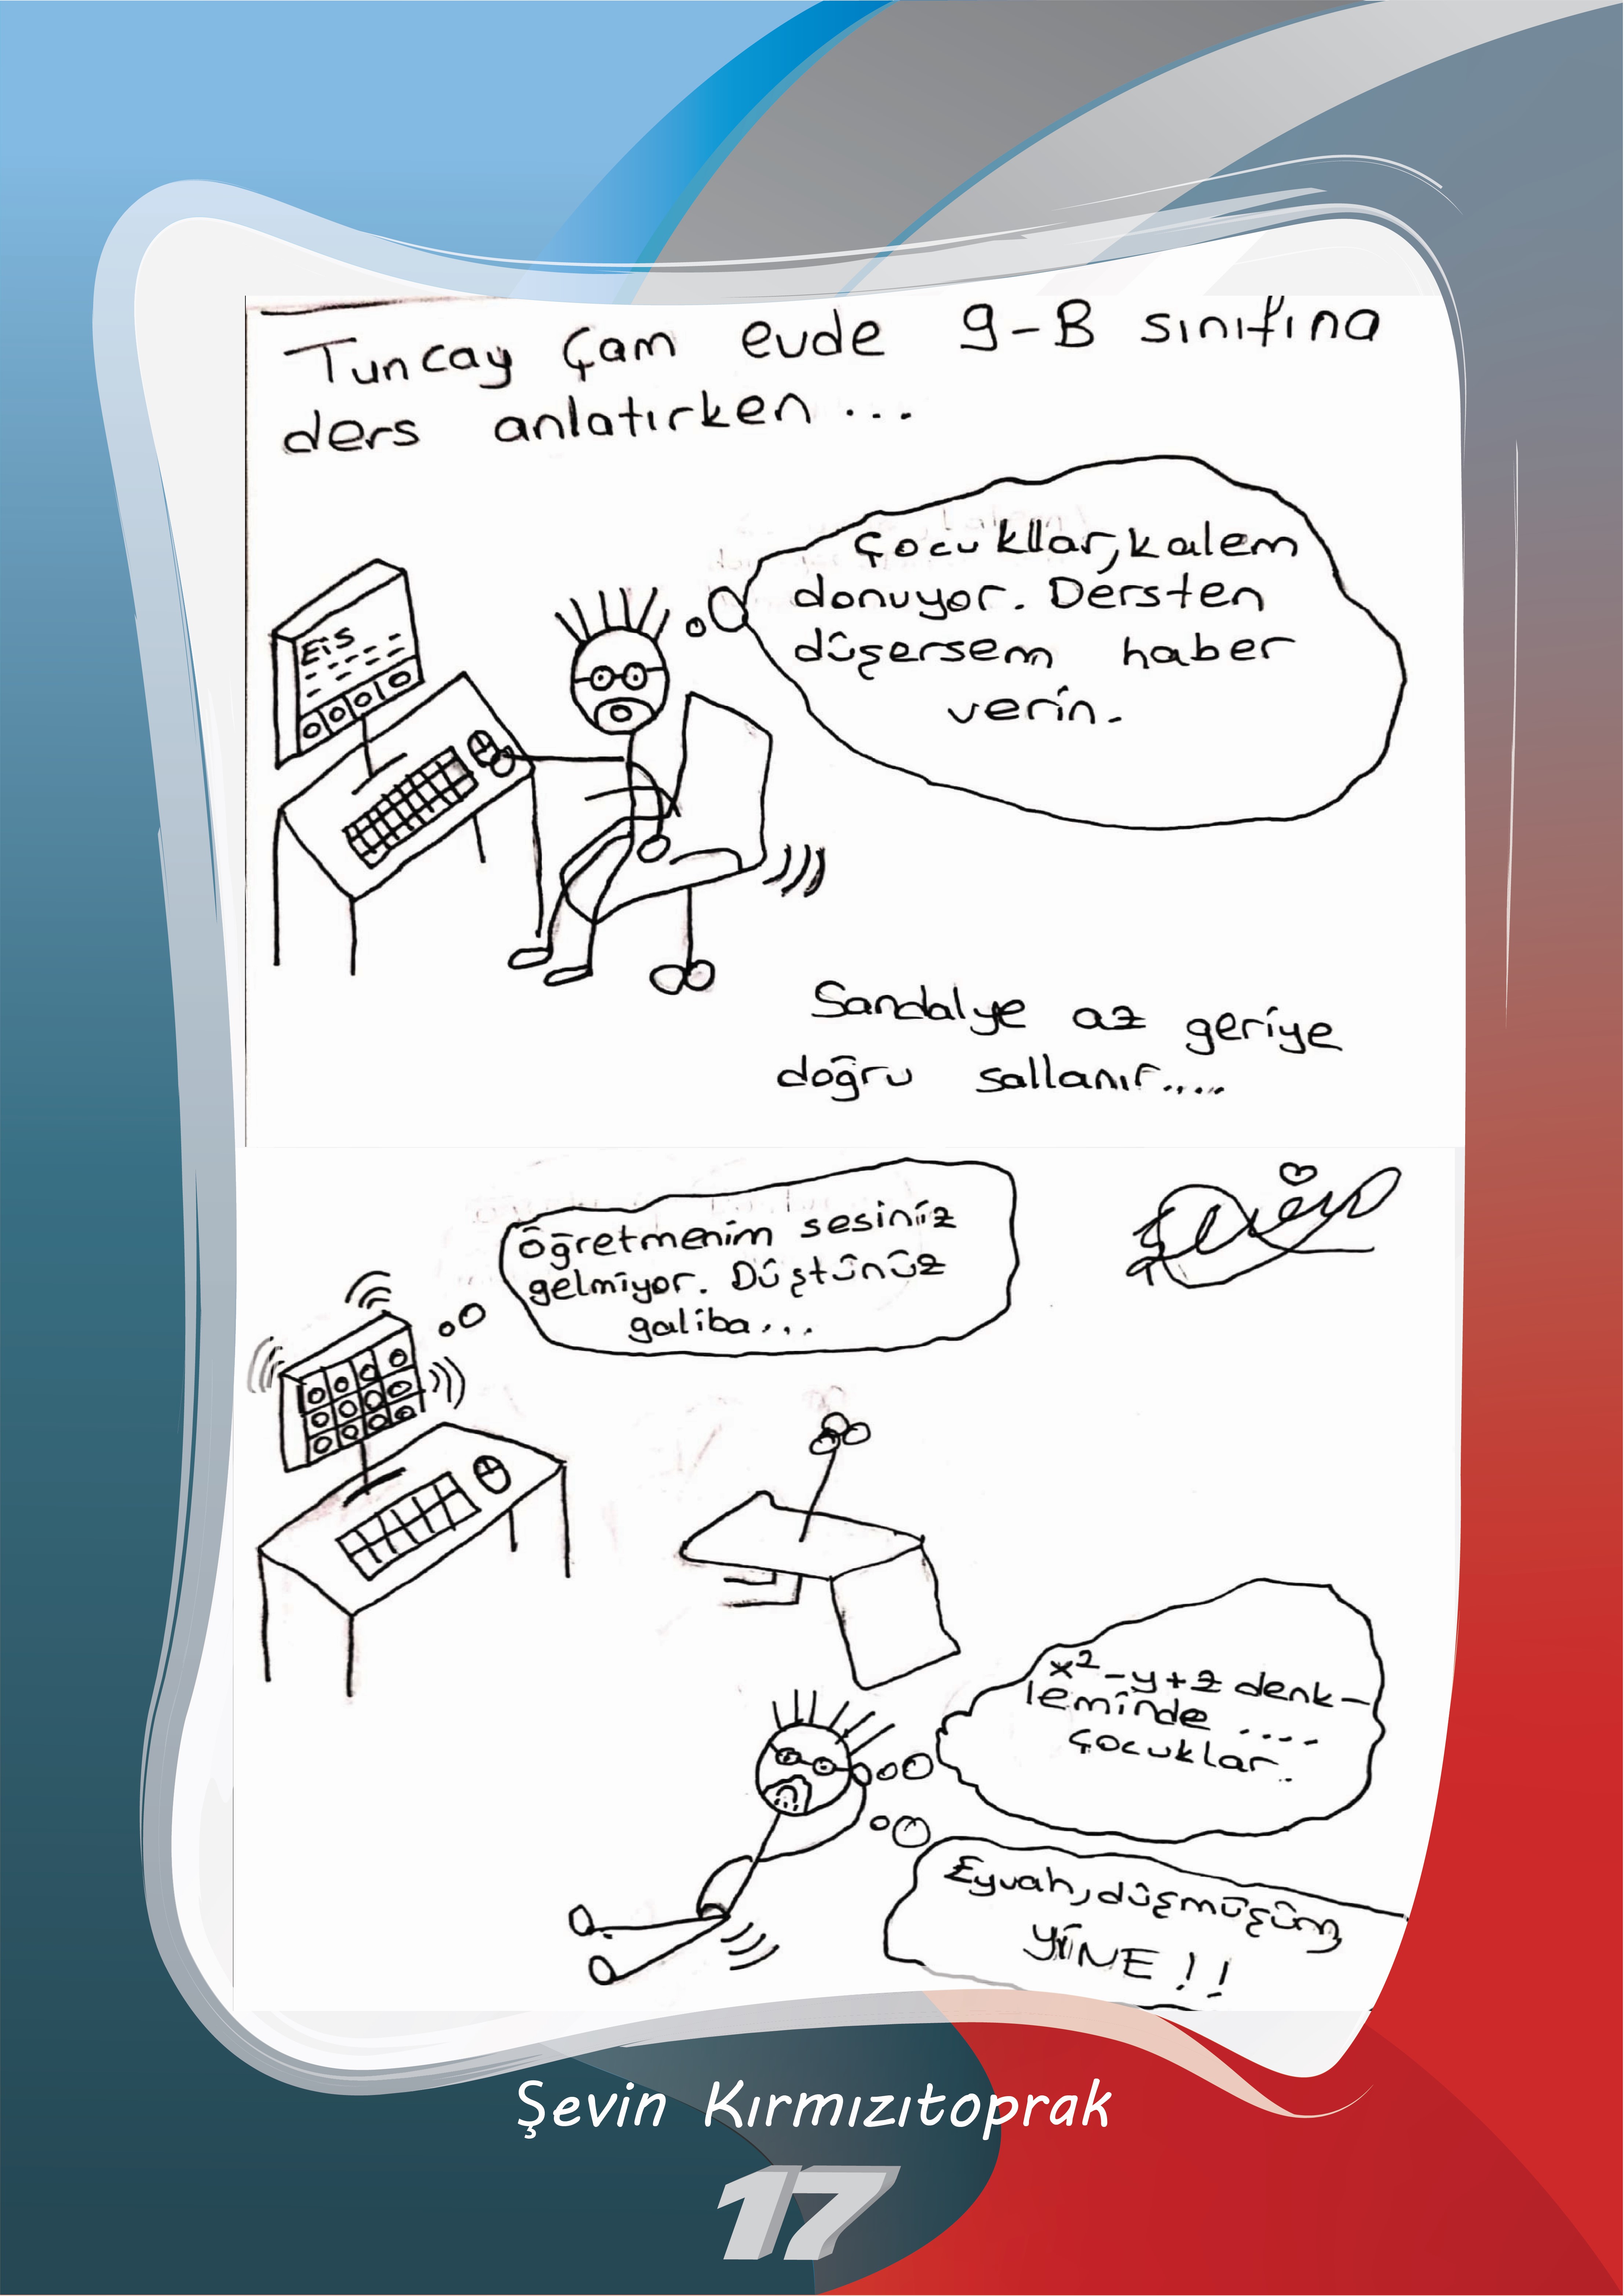 Tuncay Çam evde 9-B sınıfına
ders anlatırken...
Çocukllar, kalem
donuyor. Dersten
düşersem haber
verin.
Sandalye az geriye
doğru sallanır.....
Öğretmenim sesiniiz
gelmiyor. Düştünüz
galiba...
Şevin
x²-y+z denk-
leminde ....
çocuklar..
Eyvah, düşmüşüm
YİNE!!
Şevin Kırmızıtoprak
17